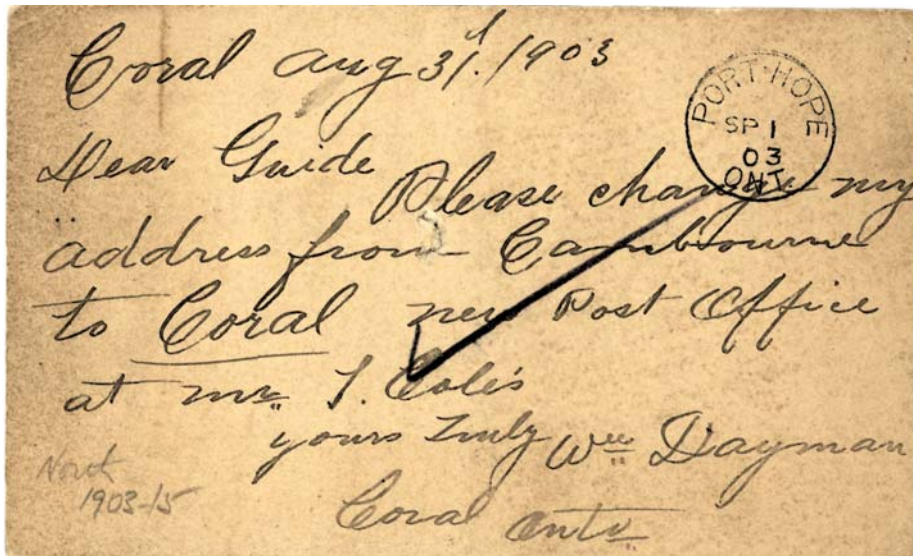 Coral Aug 31st. 1903
PORT-HOPE
SP 1
03
ONT
Dear Guide
Please change my
address from Cambourne
to Coral new Post Office
at Mr. T. Cole's
yours Truly Wm Dayman
Coral Onto
1903-15